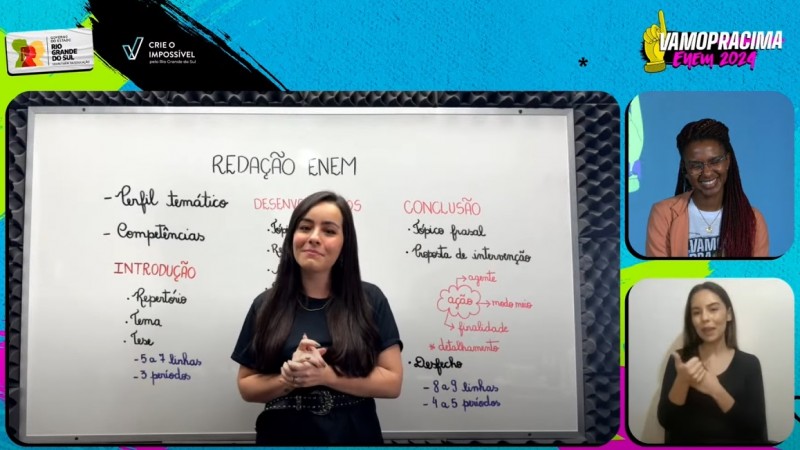 GOVERNO DO ESTADO
RIO GRANDE DO SUL
SECRETARIA DA EDUCAÇÃO
CRIE O IMPOSSÍVEL
pelo Rio Grande do Sul
VAMOPRACIMA
ENEM 2024
REDAÇÃO ENEM
- Perfil temático
- Competências
INTRODUÇÃO
· Repertório
· Tema
· Tese
- 5 a 7 linhas
- 3 períodos
CONCLUSÃO
· Tópico frasal
· Proposta de intervenção
agente
ação
modo meio
finalidade
* detalhamento
· Desfecho
- 8 a 9 linhas
- 4 a 5 períodos
VAMO